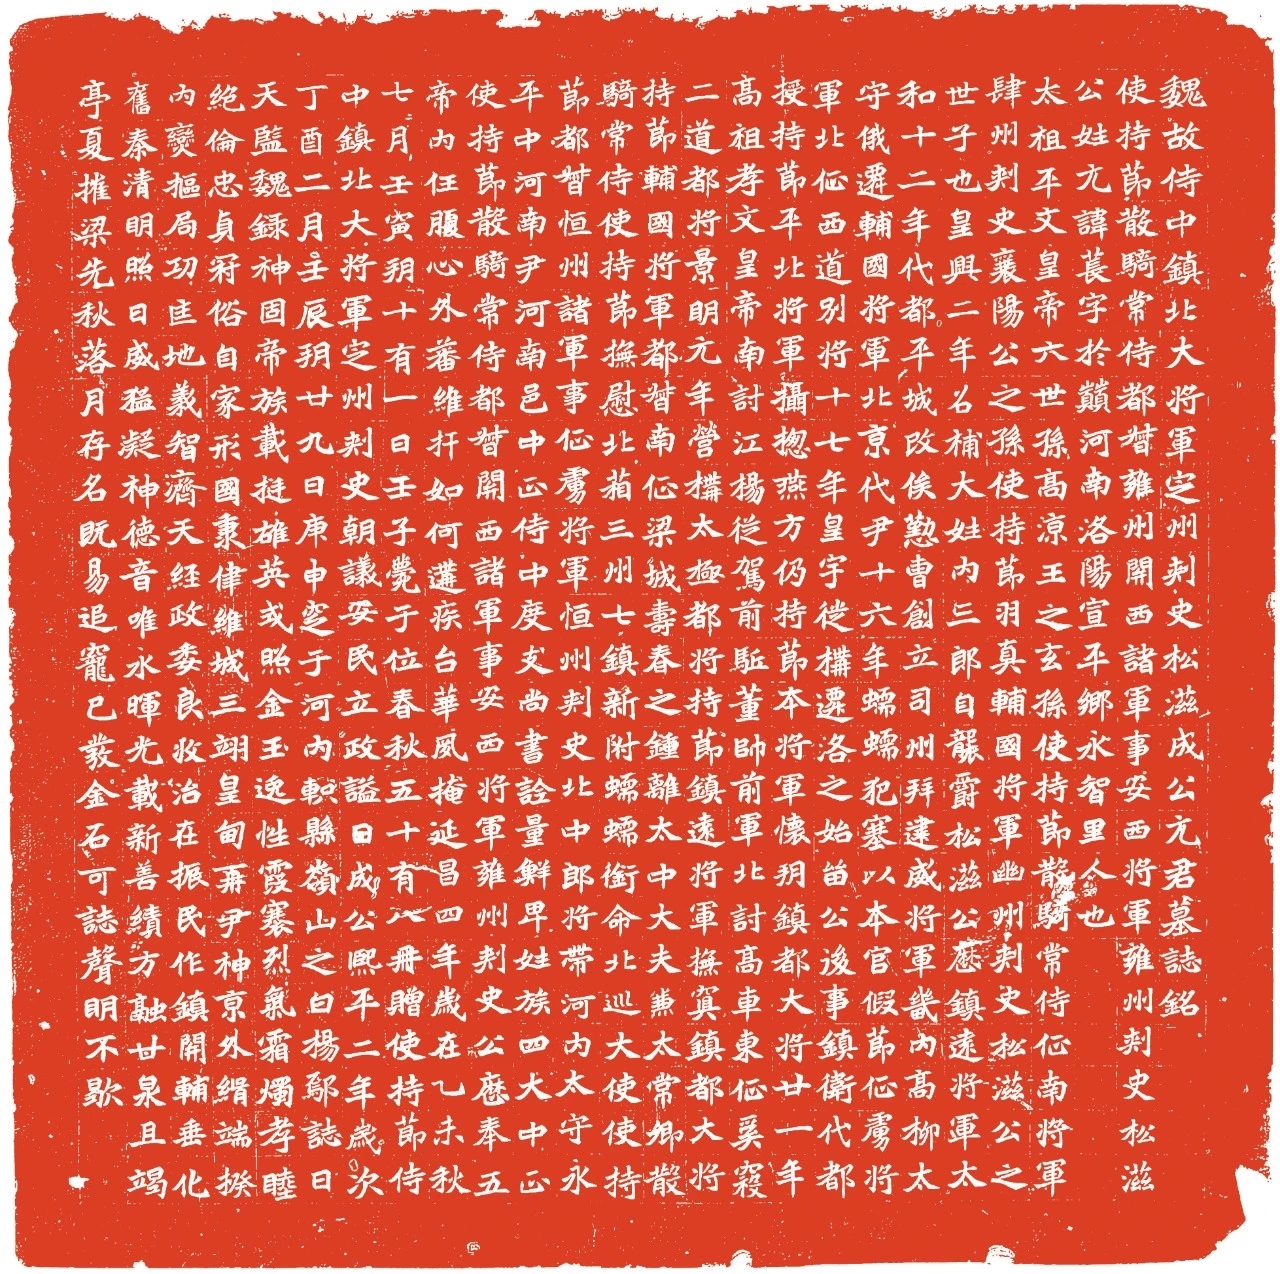 魏故侍中鎮北大將軍定州刺史松滋成公元君墓誌銘
使持節散騎常侍都督雍州關西諸軍事安西將軍雍州刺史松滋
公姓元諱萇字於巔河南洛陽宣平鄉永智里人也
太祖平文皇帝六世孫高涼王之玄孫使持節散騎常侍征南將軍
肆州刺史襄陽公之孫使持節羽真輔國將軍幽州刺史松滋公之
世子也皇興二年名補大姓內三郎自襲爵松滋公歷鎮遠將軍太
和十二年代都平城改俟懃曹創立司州拜建威將軍畿內高柳太
守俄遷輔國將軍北京代尹十六年蠕蠕犯塞以本官假節征虜將
軍北征西道別將十七年皇宇徙構遷洛之始留公後事鎮衛代都
授持節平北將軍攝揔燕方仍持節本將軍懷朔鎮都大將廿一年
高祖孝文皇帝南討江揚從駕前駈董帥前軍北討高車東征奚𥨊
二道都將景明元年營構太極都將持節鎮遠將軍撫冥鎮都大將
持節輔國將軍都督南征梁城壽春之鍾離太中大夫兼太常卿散
騎常侍使持節撫慰北蕃三州七鎮新附蠕蠕銜命北巡大使使持
節都督恒州諸軍事征虜將軍恒州刺史北中郎將帶河內太守永
平中河南尹河南邑中正侍中度支尚書詮量鮮卑姓族四大中正
使持節散騎常侍都督開西諸軍事安西將軍雍州刺史公歷奉五
帝內任腹心外蕃維扞如何遘疾台華夙掩延昌四年歲在乙未秋
七月壬寅朔十有一日壬子薨于位春秋五十有八冊贈使持節侍
中鎮北大將軍定州刺史朝議安民立政謚曰成公熙平二年歲次
丁酉二月壬辰朔廿九日庚申窆于河內軹縣嶺山之白楊鄔誌曰
天監魏錄神固帝族載挺雄英彧照金玉逸性霞褰烈氣霜燭孝睦
絕倫忠貞冠俗自家形國秉律維城三翊皇甸再尹神京外緝端揆
內爕樞局功匡地義智濟天經政委良牧治在振民作鎮開輔垂化
舊秦清明照日威猛凝神德音唯永暉光載新善績方融甘泉且竭
亭夏摧梁先秋落月存名既易追寵已蕟金石可誌聲明不歇